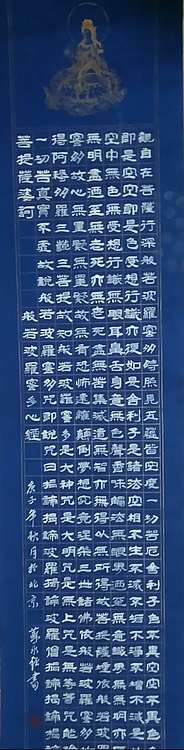 觀自在菩薩行深般若波羅蜜多時照見五蘊皆空度一切苦厄舍利子色不異空空不異色色
即是空空即是色受想行識亦復如是舍利子是諸法空相不生不滅不垢不淨不增不減是故
空中無色無受想行識無眼耳鼻舌身意無色聲香味觸法無眼界乃至無意識界無無明亦無
無明盡乃至無老死亦無老死盡無苦集滅道無智亦無得以無所得故菩提薩埵依般若波羅
蜜多故心無罣礙無罣礙故無有恐怖遠離顛倒夢想究竟涅槃三世諸佛依般若波羅蜜多故
得阿耨多羅三藐三菩提故知般若波羅蜜多是大神咒是大明咒是無上咒是無等等咒能除
一切苦真實不虛故說般若波羅蜜多咒即說咒曰揭諦揭諦波羅揭諦波羅僧揭諦
菩提薩婆訶
般若波羅蜜多心經
庚子年秋月於北京